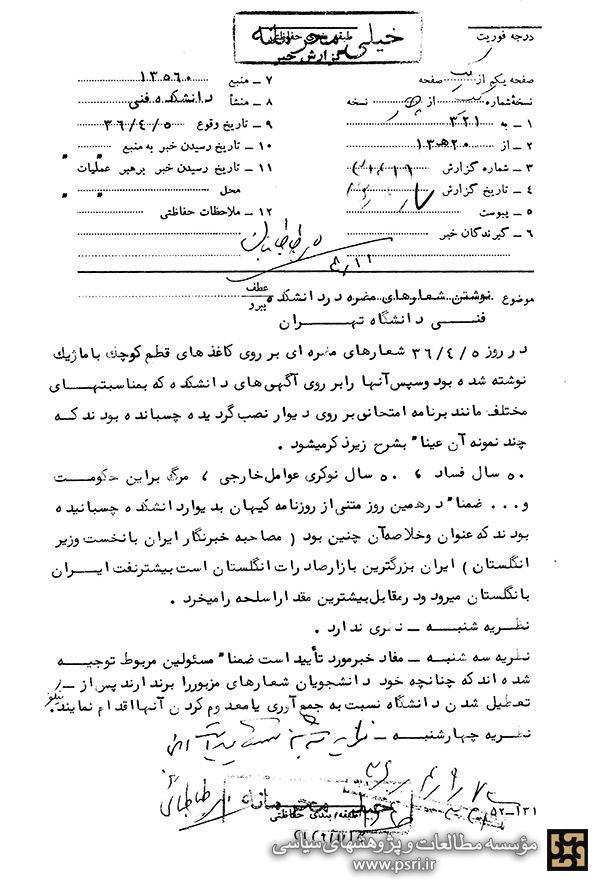 خیلی محرمانه
طبقه‌بندی حفاظتی
گزارش خبر
درجه فوریت
صفحه یکم از یک صفحه
نسخه‌شماره یک از چهار نسخه
۱ ـ به ۳۲۱
۲ ـ از ۲۰ه۱۳
۳ ـ شماره گزارش
۴ ـ تاریخ گزارش
۵ ـ پیوست
۶ ـ گیرندگان خبر
۷ ـ منبع ۱۳۵۶۰
۸ ـ منشأ دانشکده فنی
۹ ـ تاریخ وقوع ۳۶/۴/۵
۱۰ ـ تاریخ رسیدن خبر به منبع " "
۱۱ ـ تاریخ رسیدن خبر برهبر عملیات " "
محل
۱۲ ـ ملاحظات حفاظتی
موضوع نوشتن شعارهای مضره در دانشکده
عطف
پیرو
فنی دانشگاه تهران
در روز ۳۶/۴/۵ شعارهای مضره ای بر روی کاغذ های قطع کوچک با ماژیك
نوشته شده بود وسپس آنها را بر روی آگهی های دانشکده که بمناسبتهای
مختلف مانند برنامه امتحانی بر روی دیوار نصب گردیده چسبانده بودند که
چند نمونه آن عینا" بشرح زیر ذکر میشود .
۵۰ سال فساد ، ۵۰ سال نوکری عوامل خارجی ، مرگ بر این حکومت
و ... ضمنا" در همین روز متنی از روزنامه کیهان بدیوار دانشکده چسبانیده
بودند که عنوان وخلاصه آن چنین بود ( مصاحبه خبرنگار ایران با نخست وزیر
انگلستان ) ایران بزرگترین بازار صادرات انگلستان است بیشتر نفت ایران
بانگلستان میرود ودر مقابل بیشترین مقدار اسلحه را میخرد .
نظریه شنبه ـ نظری ندارد .
نظریه سه شنبه ـ مفاد خبر مورد تأیید است ضمنا" مسئولین مربوط توجیه
شده اند که چنانچه خود دانشجویان شعارهای مزبور را برندارند پس از ـ
تعطیل شدن دانشگاه نسبت به جمع آوری یا معدوم کردن آنها اقدام نمایند.
نظریه چهارشنبه ـ
۱۳۱ـ۵۲
خیلی محرمانه
طبقه‌بندی حفاظتی
مؤسسه مطالعات و پژوهشهای سیاسی
www.psri.ir